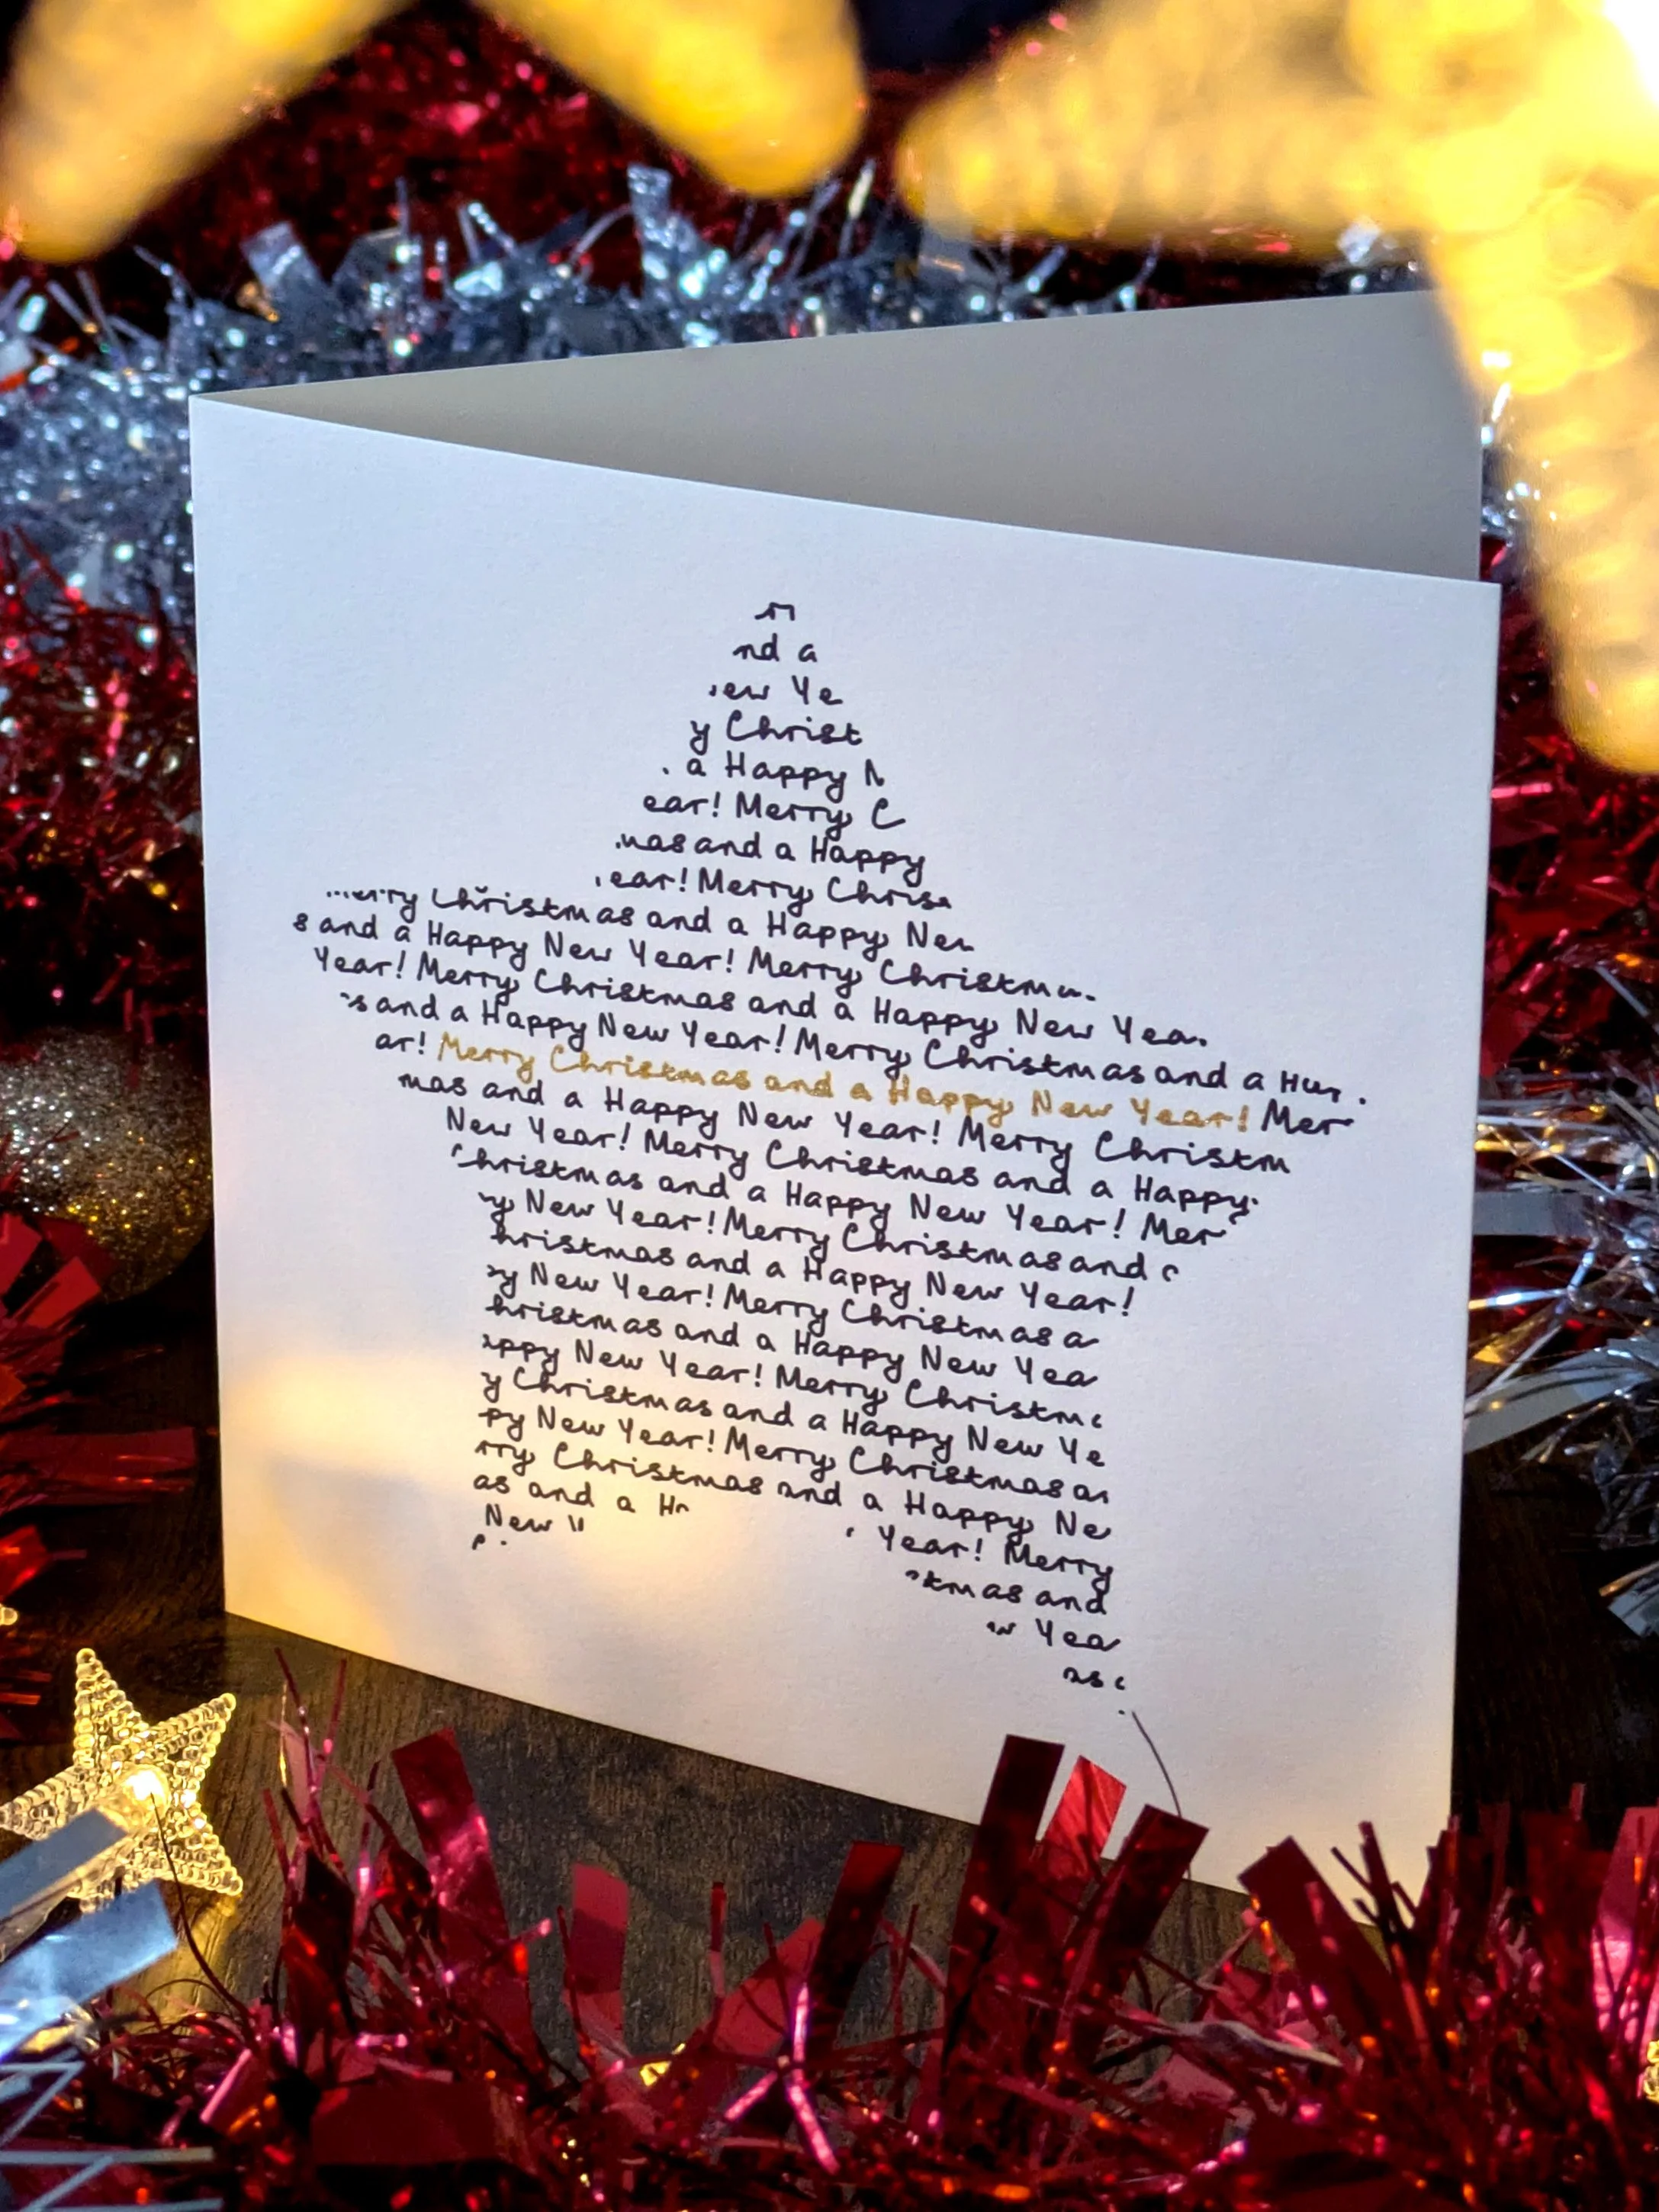 nd a
ew Ye
y Christ
a Happy N
ear! Merry C
mas and a Happy
ear! Merry Chris
erry Christmas and a Happy New
s and a Happy New Year! Merry Christm
Year! Merry Christmas and a Happy New Yea
s and a Happy New Year! Merry Christmas and a Ha
ar! Merry Christmas and a Happy New Year! Mer
mas and a Happy New Year! Merry Christm
New Year! Merry Christmas and a Happy
Christmas and a Happy New Year! Mer
y New Year! Merry Christmas and
hristmas and a Happy New Year!
y New Year! Merry Christmas a
hristmas and a Happy New Yea
appy New Year! Merry Christm
y Christmas and a Happy New Ye
py New Year! Merry Christmas a
rry Christmas and a Happy Ne
as and a H Year! Merry
New tmas and
w Yea
as